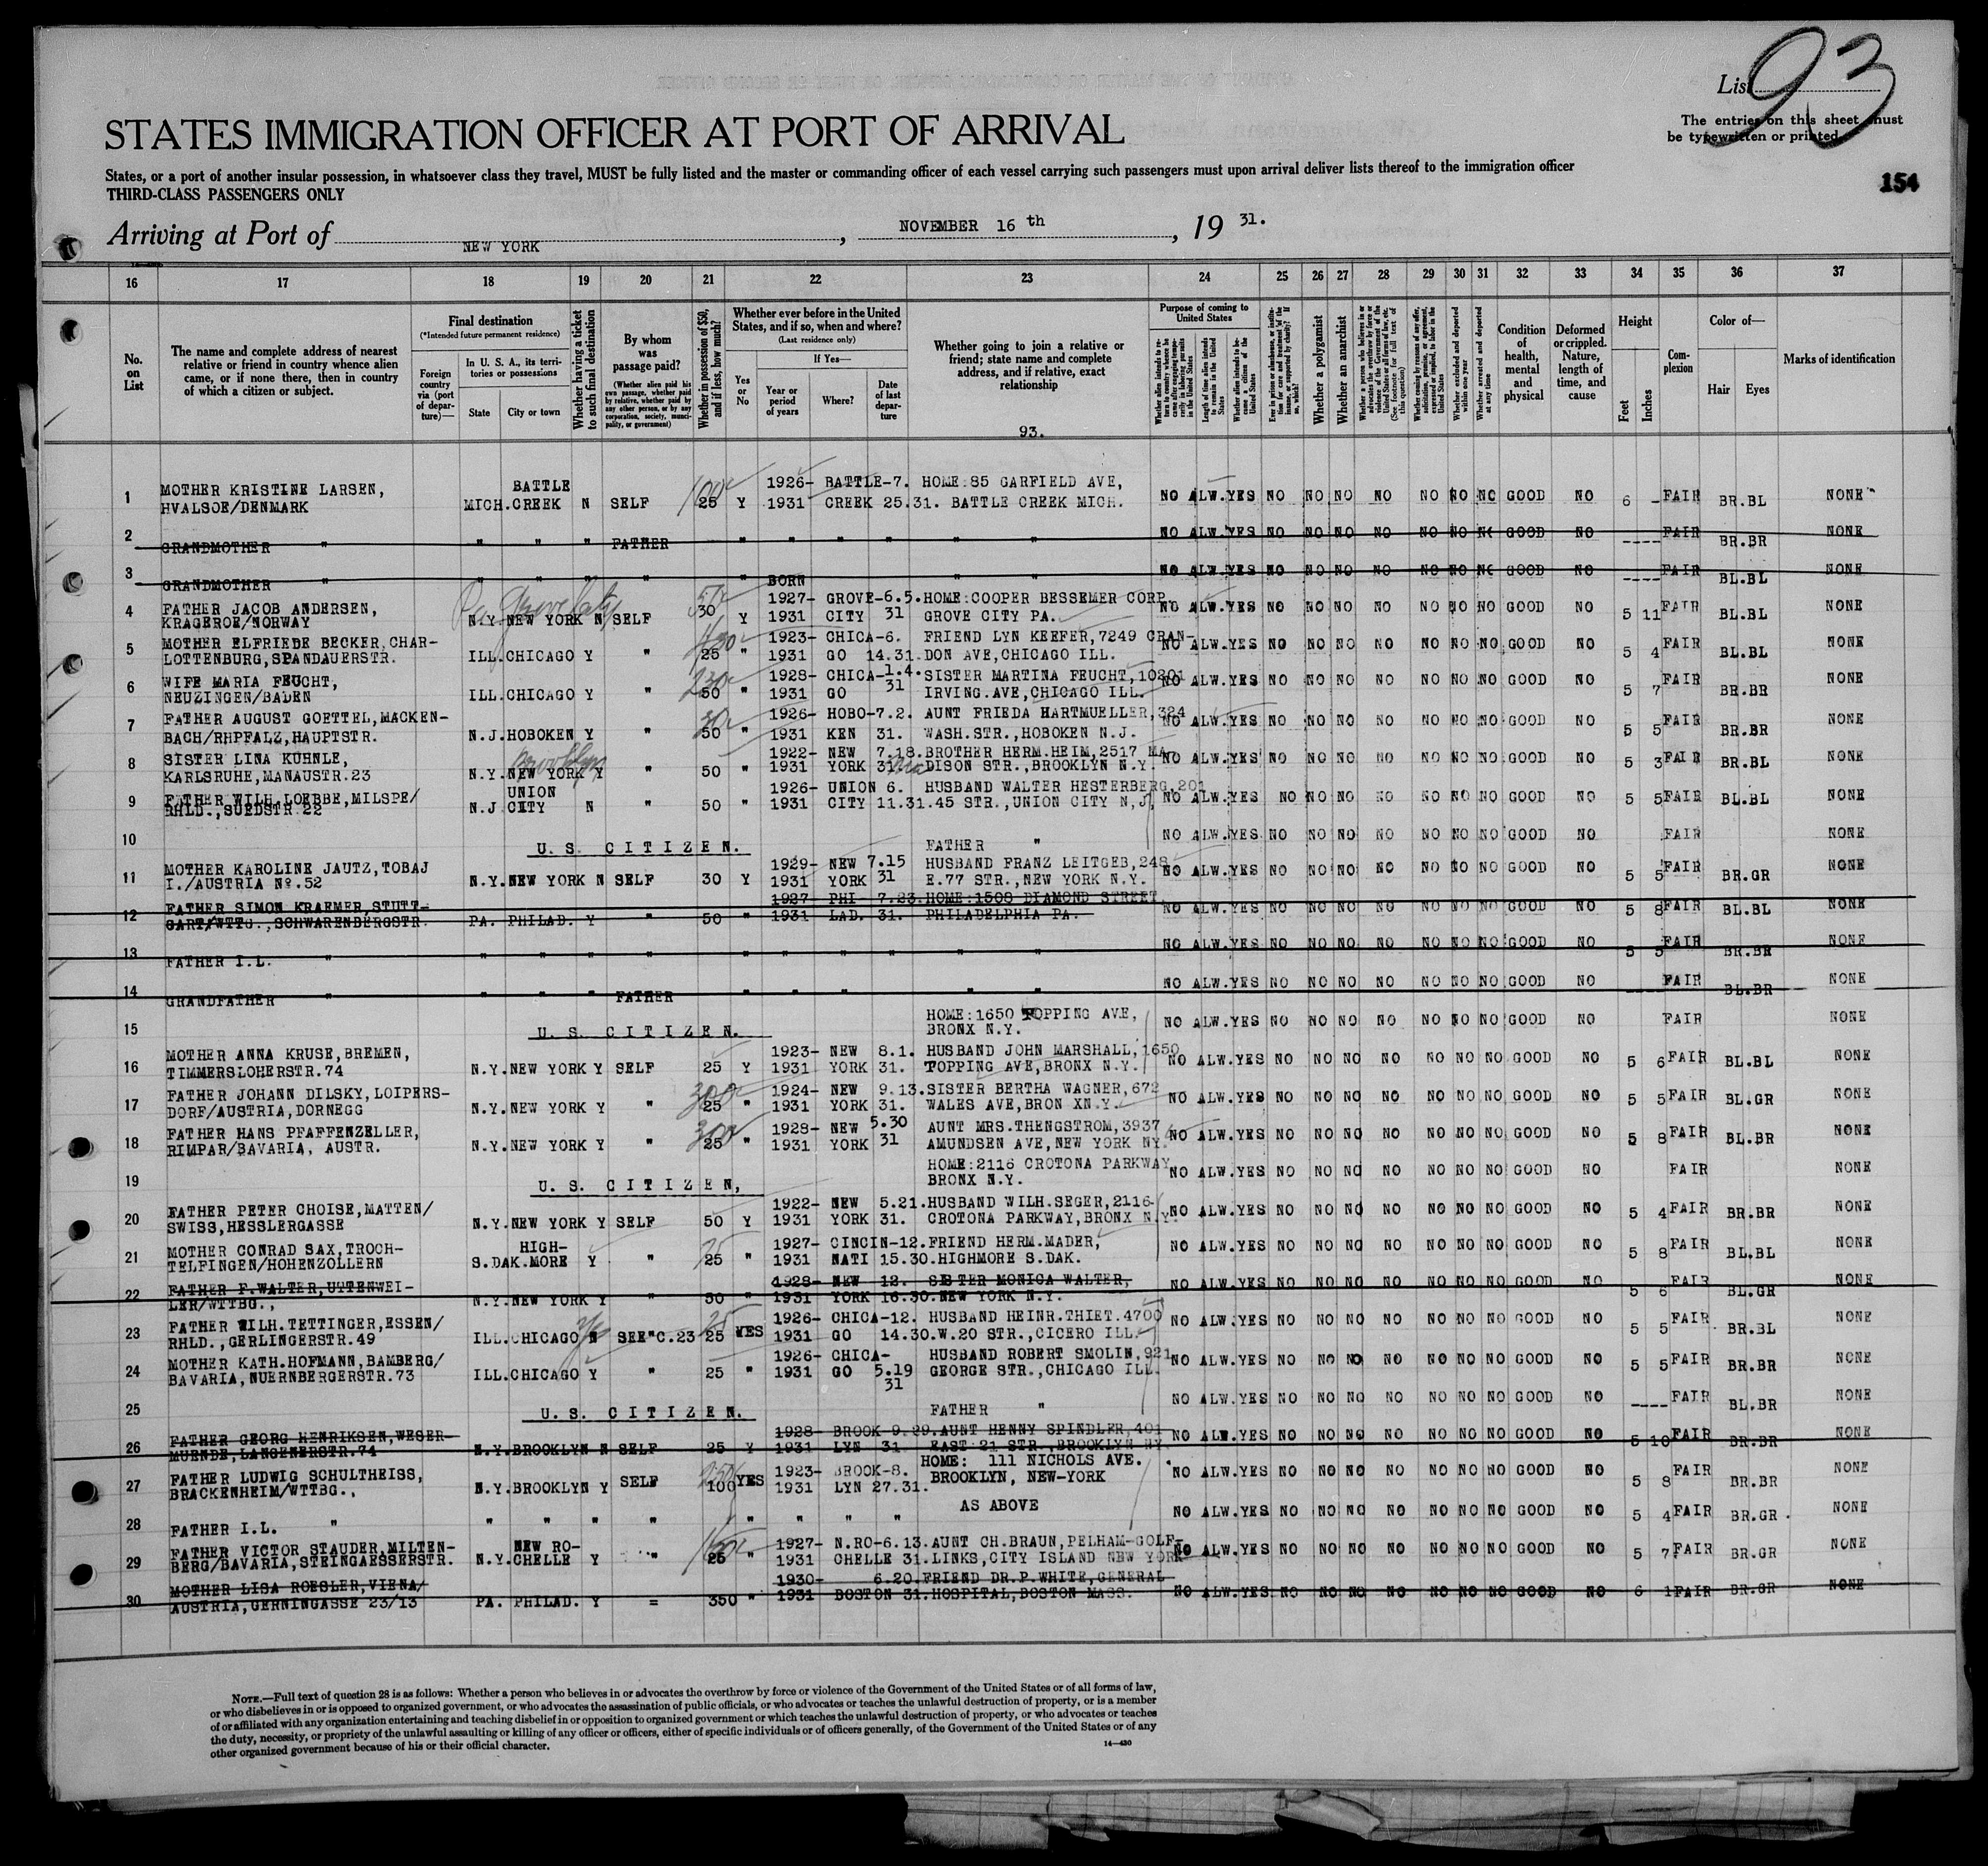 List 93
STATES IMMIGRATION OFFICER AT PORT OF ARRIVAL
The entries on this sheet must
be typewritten or printed.
States, or a port of another insular possession, in whatsoever class they travel, MUST be fully listed and the master or commanding officer of each vessel carrying such passengers must upon arrival deliver lists thereof to the immigration officer
THIRD-CLASS PASSENGERS ONLY
154
Arriving at Port of NEW YORK, NOVEMBER 16 th, 19 31.
16 17 18 19 20 21 22 23 24 25 26 27 28 29 30 31 32 33 34 35 36 37
No. on List
The name and complete address of nearest relative or friend in country whence alien came, or if none there, then in country of which a citizen or subject.
Final destination
(*Intended future permanent residence)
Foreign country via (port of departure)—
In U. S. A., its territories or possessions
State
City or town
Whether having a ticket to such final destination
By whom was passage paid?
(Whether alien paid his own passage, whether paid by relative, whether paid by any other person, or by any corporation, society, municipality, or government)
Whether in possession of $50, and if less, how much?
Whether ever before in the United States, and if so, when and where?
(Last residence only)
Yes or No
If Yes—
Year or period of years
Where?
Date of last departure
Whether going to join a relative or friend; state name and complete address, and if relative, exact relationship
93.
Purpose of coming to United States
Length of time alien intends to remain in the United States
Whether alien intends to become a citizen of the United States
Whether a polygamist
Whether an anarchist
Whether excluded and deported within one year
Whether arrested and deported at any time
Condition of health, mental and physical
Deformed or crippled. Nature, length of time, and cause
Height
Feet
Inches
Complexion
Color of—
Hair
Eyes
Marks of identification
1 MOTHER KRISTINE LARSEN, HVALSOE/DENMARK MICH. BATTLE CREEK N SELF 100 25 Y 1926- 1931 BATTLE- CREEK 7. 25.31. HOME:85 GARFIELD AVE, BATTLE CREEK MICH. NO ALW. YES NO NO NO NO NO NO NO GOOD NO 6 - FAIR BR.BL NONE
2 GRANDMOTHER " " " " FATHER " " " " " " NO ALW. YES NO NO NO NO NO NO NO GOOD NO ---- FAIR BR.BR NONE
3 GRANDMOTHER " " " " " " BORN " " NO ALW. YES NO NO NO NO NO NO NO GOOD NO ---- FAIR BL.BL NONE
4 FATHER JACOB ANDERSEN, KRAGEROE/NORWAY Pa. Grove City N.Y. NEW YORK N SELF 30 Y 1927- 1931 GROVE- CITY 6.5. 31 HOME:COOPER BESSEMER CORP. GROVE CITY PA. NO ALW. YES NO NO NO NO NO NO NO GOOD NO 5 11 FAIR BL.BL NONE
5 MOTHER ELFRIEDE BECKER, CHARLOTTENBURG,SPANDAUERSTR. ILL. CHICAGO Y " 25 " 1923- 1931 CHICA- GO 6. 14.31. FRIEND LYN KEEFER,7249 CRAN- DON AVE,CHICAGO ILL. NO ALW. YES NO NO NO NO NO NO NO GOOD NO 5 4 FAIR BL.BL NONE
6 WIFE MARIA FEUCHT, NEUZINGEN/BADEN ILL. CHICAGO Y " 230 50 " 1928- 1931 CHICA- GO 1.4. 31 SISTER MARTINA FEUCHT,10201 IRVING.AVE,CHICAGO ILL. NO ALW. YES NO NO NO NO NO NO NO GOOD NO 5 7 FAIR BR.BR NONE
7 FATHER AUGUST GOETTEL,MACKEN- BACH/RHPFALZ,HAUPTSTR. N.J. HOBOKEN Y " 30 50 " 1926- 1931 HOBO- KEN 7.2. 31. AUNT FRIEDA HARTMUELLER,324 WASH.STR.,HOBOKEN N.J. NO ALW. YES NO NO NO NO NO NO NO GOOD NO 5 5 FAIR BR.BR NONE
8 SISTER LINA KUHNLE, KARLSRUHE,MANAUSTR.23 Brooklyn N.Y. NEW YORK Y " 50 " 1922- 1931 NEW YORK 7.18. BROTHER HERM.HEIM,2517 MA- DISON STR.,BROOKLYN N.Y. NO ALW. YES NO NO NO NO NO NO NO GOOD NO 5 3 FAIR BR.BL NONE
9 FATHER WILH.LOEBBE,MILSPE/ RHLD.,SUEDSTR.22 N.J. UNION CITY N " 50 " 1926- 1931 UNION CITY 6. 11.31. HUSBAND WALTER HESTERBERG,201 45 STR.,UNION CITY N,J, NO ALW. YES NO NO NO NO NO NO NO GOOD NO 5 5 FAIR BL.BL NONE
10 U. S. CITIZEN. FATHER " NO ALW. YES NO NO NO NO NO NO NO GOOD NO FAIR NONE
11 MOTHER KAROLINE JAUTZ,TOBAJ I./AUSTRIA No.52 N.Y. NEW YORK N SELF 30 Y 1929- 1931 NEW YORK 7.15 31 HUSBAND FRANZ LEITGEB,248 E.77 STR.,NEW YORK N.Y. NO ALW. YES NO NO NO NO NO NO NO GOOD NO 5 5 FAIR BR.GR NONE
12 FATHER SIMON KRAEMER,STUTT- GART/WTTG.,SCHWARENBERGSTR. PA. PHILAD. Y " 50 " 1927- 1931 PHI- LAD. 7.23. 31. HOME:1508 DIAMOND STREET PHILADELPHIA PA. NO ALW. YES NO NO NO NO NO NO NO GOOD NO 5 8 FAIR BL.BL NONE
13 FATHER I.L. " " " " " " " " " " " NO ALW. YES NO NO NO NO NO NO NO GOOD NO 5 5 FAIR BR.BR NONE
14 GRANDFATHER " " " " FATHER " " " " " NO ALW. YES NO NO NO NO NO NO NO GOOD NO FAIR BL.BR NONE
15 U. S. CITIZEN. HOME:1650 TOPPING AVE, BRONX N.Y. NO ALW. YES NO NO NO NO NO NO NO GOOD NO FAIR NONE
16 MOTHER ANNA KRUSE,BREMEN, TIMMERSLOHERSTR.74 N.Y. NEW YORK Y SELF 25 Y 1923- 1931 NEW YORK 8.1. 31. HUSBAND JOHN MARSHALL,1650 TOPPING AVE,BRONX N.Y. NO ALW. YES NO NO NO NO NO NO NO GOOD NO 5 6 FAIR BL.BL NONE
17 FATHER JOHANN DILSKY,LOIPERS- DORF/AUSTRIA,DORNEGG N.Y. NEW YORK Y " 300 25 " 1924- 1931 NEW YORK 9.13. 31. SISTER BERTHA WAGNER,672 WALES AVE,BRON XN.Y. NO ALW. YES NO NO NO NO NO NO NO GOOD NO 5 5 FAIR BL.GR NONE
18 FATHER HANS PFAFFENZELLER, RIMPAR/BAVARIA, AUSTR. N.Y. NEW YORK Y " 300 25 " 1928- 1931 NEW YORK 5.30 31 AUNT MRS.THENGSTROM,3937 AMUNDSEN AVE,NEW YORK NY. NO ALW. YES NO NO NO NO NO NO NO GOOD NO 5 8 FAIR BL.BR NONE
19 U. S. CITIZEN, HOME:2116 CROTONA PARKWAY BRONX N.Y. NO ALW. YES NO NO NO NO NO NO NO GOOD NO FAIR NONE
20 FATHER PETER CHOISE,MATTEN/ SWISS,HESSLERGASSE N.Y. NEW YORK Y SELF 50 Y 1922- 1931 NEW YORK 5.21. 31. HUSBAND WILH.SEGER,2116 CROTONA PARKWAY,BRONX N.Y. NO ALW. YES NO NO NO NO NO NO NO GOOD NO 5 4 FAIR BR.BR NONE
21 MOTHER CONRAD SAX,TROCH- TELFINGEN/HOHENZOLLERN S.DAK. HIGH- MORE Y " 75 25 " 1927- 1931 CINCIN- NATI 12. 15.30. FRIEND HERM.MADER, HIGHMORE S.DAK. NO ALW. YES NO NO NO NO NO NO NO GOOD NO 5 8 FAIR BL.BL NONE
22 FATHER F.WALTER,UTTENWEI- LER/WTTBG., N.Y. NEW YORK Y " 50 " 1928- 1931 NEW YORK 12. 16.30. SISTER MONICA WALTER, NEW YORK N.Y. NO ALW. YES NO NO NO NO NO NO NO GOOD NO 5 6 FAIR BL.GR NONE
23 FATHER WILH.TETTINGER,ESSEN/ RHLD.,GERLINGERSTR.49 ILL. CHICAGO N yes SEE"C.23 25 25 YES 1926- 1931 CHICA- GO 12. 14.30. HUSBAND HEINR.THIET.4700 W.20 STR.,CICERO ILL. NO ALW. YES NO NO NO NO NO NO NO GOOD NO 5 5 FAIR BR.BL NONE
24 MOTHER KATH.HOFMANN,BAMBERG/ BAVARIA,NUERNBERGERSTR.73 ILL. CHICAGO Y " 25 " 1926- 1931 CHICA- GO 5.19 31 HUSBAND ROBERT SMOLIN,921 GEORGE STR.,CHICAGO ILL. NO ALW. YES NO NO NO NO NO NO NO GOOD NO 5 5 FAIR BR.BR NONE
25 U. S. CITIZEN. FATHER " NO ALW. YES NO NO NO NO NO NO NO GOOD NO ---- FAIR BL.BR NONE
26 FATHER GEORG HENRIKSEN,WESER- MUENDE,LANGENERSTR.74 N.Y. BROOKLYN N SELF 25 Y 1928- 1931 BROOK- LYN 9.29. 31. AUNT HENNY SPINDLER,401 EAST 21 STR.,BROOKLYN NY. NO ALW. YES NO NO NO NO NO NO NO GOOD NO 5 10 FAIR BR.BR NONE
27 FATHER LUDWIG SCHULTHEISS, BRACKENHEIM/WTTBG., N.Y. BROOKLYN Y SELF 250 100 YES 1923- 1931 BROOK- LYN 8. 27.31. HOME: 111 NICHOLS AVE. BROOKLYN, NEW-YORK NO ALW. YES NO NO NO NO NO NO NO GOOD NO 5 8 FAIR BR.BR NONE
28 FATHER I.L. " " " " " " " " " AS ABOVE NO ALW. YES NO NO NO NO NO NO NO GOOD NO 5 4 FAIR BR.GR. NONE
29 FATHER VICTOR STAUDER,MILTEN- BERG/BAVARIA,STEINGAESSERSTR. N.Y. NEW RO- CHELLE Y " 25 " 1927- 1931 N.RO- CHELLE 6.13. 31. AUNT CH.BRAUN,PELHAM-GOLF- LINKS,CITY ISLAND NEW YORK NO ALW. YES NO NO NO NO NO NO NO GOOD NO 5 7 FAIR BR.GR NONE
30 MOTHER LISA ROESLER,VIENA/ AUSTRIA,GERNINGASSE 23/13 PA. PHILAD. Y = 350 " 1930- 1931 BOSTON 6.20. 31. FRIEND DR.P.WHITE,GENERAL HOSPITAL,BOSTON MASS. NO ALW. YES NO NO NO NO NO NO NO GOOD NO 6 1 FAIR BR.GR NONE
NOTE.—Full text of question 28 is as follows: Whether a person who believes in or advocates the overthrow by force or violence of the Government of the United States or of all forms of law,
or who disbelieves in or is opposed to organized government, or who advocates the assassination of public officials, or who advocates or teaches the unlawful destruction of property, or is a member
of or affiliated with any organization entertaining and teaching disbelief in or opposition to organized government or which teaches the unlawful destruction of property, or who advocates or teaches
the duty, necessity, or propriety of the unlawful assaulting or killing of any officer or officers, either of specific individuals or of officers generally, of the Government of the United States or of any
other organized government because of his or their official character.
14—430